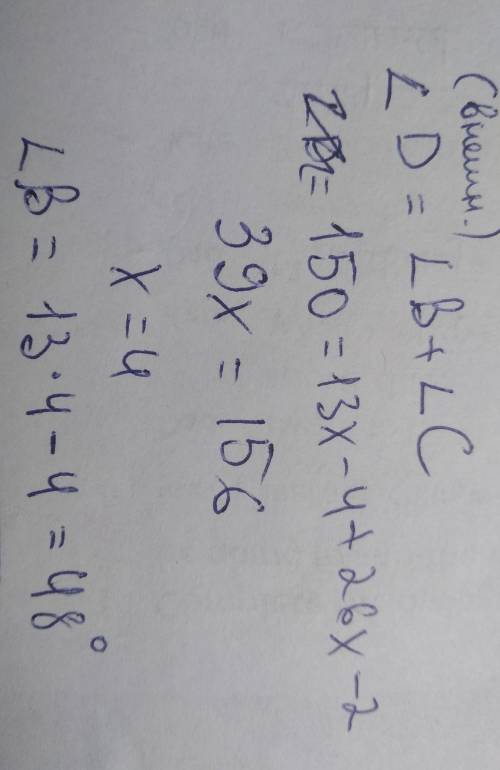 (внешн.)
∠D = ∠B + ∠C
150 = 13x - 4 + 26x - 2
39x = 156
x = 4
∠B = 13·4 - 4 = 48°